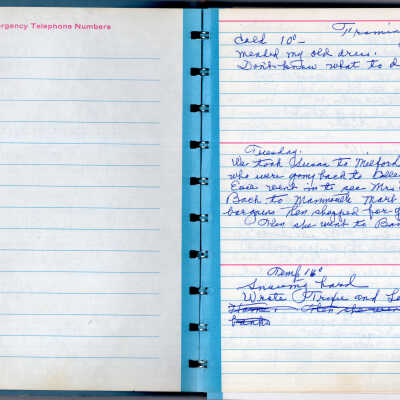 ergency Telephone Numbers
Cold 10°-
mended my old dress.
Don't know what to d
Tuesday.
We took Susan to Milford
who were going back to Belle
Evie went in to see Mrs
Back to Mammouth Mart
bargains then shopped for g
Then she went to Ban
Temp 16°
Snowing hard
Wrote and Le
Then she wen
banks